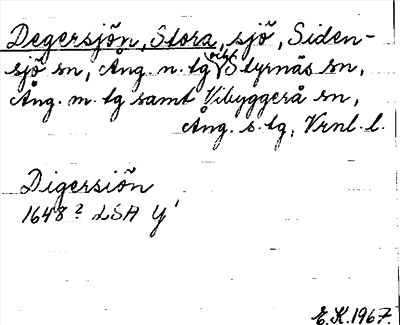 Degersjön, Stora, sjö, Siden-
sjö sn, Ång. n. tg och Styrnäs sn,
Ång. m. tg samt Vibyggerå sn,
Ång. s. tg, Vrnl. l.
Digersiön
1648? LSA Y'
E.K. 1967.